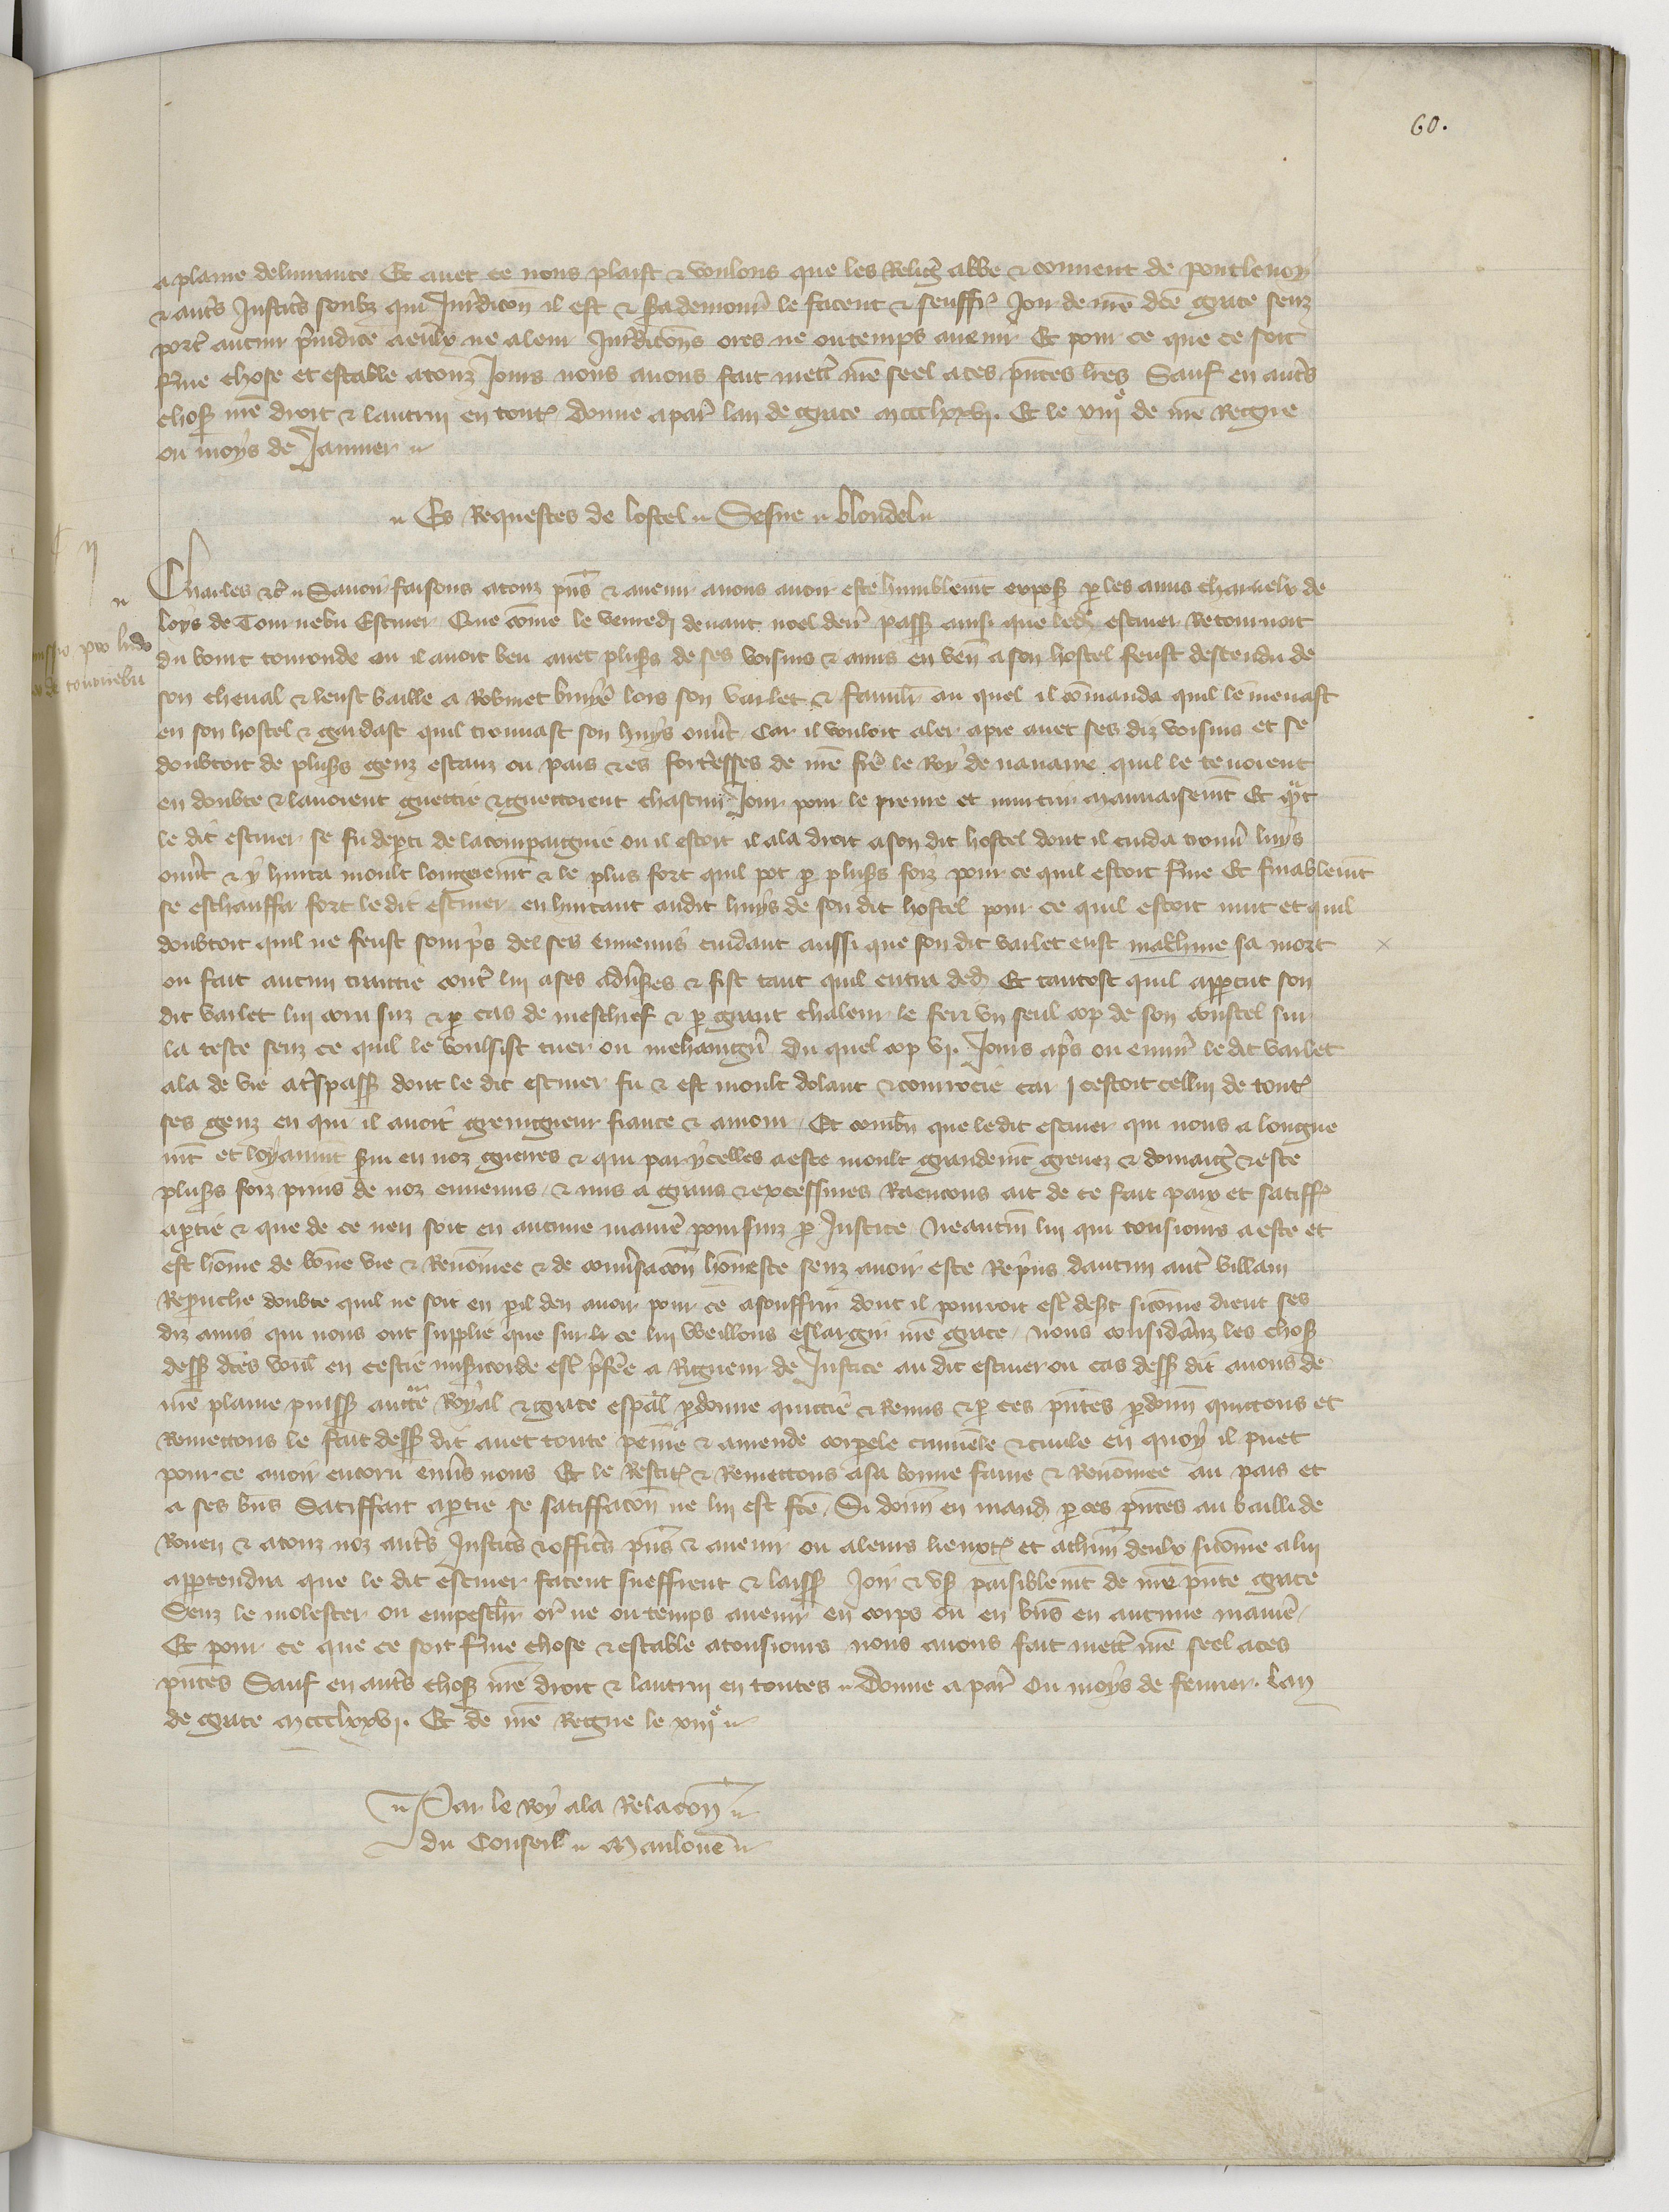 60.
a plaine delivrance Et avec ce nous plaist & voulons que les Relig̃ abbe & couvent de pontlevoy
& autr̃s Justic̃s soubz qui Jur̃dicõn il est & sa demour̃ le facent & seuffr̃ Joir de nr̃e dc̃e grace senz
port̃ aucun p̃iudice a eulx ne a leur Jur̃dicõns ores ne ou temps avenir Et pour ce que ce soit
ferme chose et estable a touz Jours nous avons fait mettr̃ nr̃e seel a ces p̃ntes lr̃es Sauf en autr̃s
choses nr̃e droit & lautrui en tout̃ Donne a par̃ lan de grace mccclxxvi. Et le xiiiᵉ de nr̃e Regne
ou moys de Janvier
Es Requestes de lostel Sesne blondel
Charles &c̃ Savoir faisons a touz p̃ns & avenir a nous avoir este humblem̃t expose p̃ les amis charnelx de
loys de Tournebu Escuier Que cõme le venredi devant noel derr̃ passe ainsi que ledit escuier Retournoit
du bourt touronde ou il avoit beu avec plus̃s de ses voisins & amis en ven̄ a son hostel feust descendu de
missio pro ludo
de tournebu
son cheval & leust baille a Robinet lors son varlet & famil̃r au quel il cõmanda quil le menast
en son hostel & gardast quil trouvast son huys ouṽt Car il vouloit aler a pie avec ses diz voisins et se
doubtoit de plus̃s genz estanz ou pais & es fort̃esses de nr̃e frẽ le Roy de navarre quil le tenoient
en doubte & lavoient guettie & guettoient chascun Jour pour le prenre et murtrir mauvaisem̃t Et q̃nt
le dit escuier se fu dep̃ti de la compaignie ou il estoit il ala droit a son dit hostel dont il cuida trouṽ luys
ouṽt & y hurta moult longuem̃t & le plus fort quil pot p̃ plus̃s foiz pour ce quil estoit ferme Et finablem̃t
se eschauffa fort le dit escuier en hurtant au dit huys de son dit hostel pour ce quil estoit nuit et quil
doubtoit quil ne feust sourp̃s de ses ennemis cuidant aussi que son dit varlet eust makhine sa mort
ou fait aucun traittie contr̃ lui a ses adṽses & fist tant quil entra ded̃ Et tantost quil app̃cut son
dit varlet lui courr suz & p̃ cas de meschief & p̃ grant chaleur le feri un seul cop de son coustel sur
la teste senz ce quil le voulsist tuer ou mehaingñ du quel cop vi. Jours ap̃s ou environ le dit varlet
ala de vie a tr̃spass̃ dont le dit escuier fu & est moult dolant & courrocie car J cestoit cellui de tout̃
ses genz en qui il avoit greingneur fiance & amour Et combñ que ledit escuier qui nous a longue
mt̃ et loyaum̃t servi en noz guerres & qui par ycelles a este moult grandem̃t grevez & domaig̃ & este
plus̃s foiz prins de noz ennemis & mis a grans & excessives Raencons ait de ce fait paix et satiffc̃
a p̃tie & que de ce nen soit en aucune manier̃ poursuiz p̃ Justice Neantm̃ lui qui tousiours a este et
est hõme de bõne vie & Renõmee & de conṽsacõn hõneste senz avoir este Rep̃ns daucun autr̃ villain
Rep̃uche doubte quil ne soit en p̃il den avoir pour ce a souffrir dont il pourroit estr̃ des̃t sicõme dient ses
diz amis qui nous ont supplie que sur ce lui Weillons eslargir nr̃e grace Nous consider̃ans les choses
dess̃ dc̃es voul̃ en ceste mis̃icorde estr̃ p̃fer̃e a Rigueur de Justice au dit escuier ou cas dess̃ dit avons de
nr̃e plaine puiss̃ auctẽ Royal & grace esp̃al p̃donne quictie & Remis & p̃ ces p̃ntes p̃donn̄ quictons et
Remettons le fait dess̃ dit avec toute peine & amende corp̃ele crimin̄ele & civile en quoy il puet
pour ce avoir encoru env̄s nous Et le Restit̃ & Remettons a sa bonne fame & Renõmee au pais et
a ses bñs Satiffait a p̃tie se satiffacõn ne lui est fc̃e Si donn̄ en mand̃ p̃ ces p̃ntes au bailli de
Rouen & a touz noz autr̃s Justic̃s & offic̃s p̃ns & avenir ou a leurs lieuxt̃ et a chun̄ deulx sicõme a lui
app̃tendra que le dit escuier facent sueffrent & laiss̃ Joir & us̃ paisiblem̃t de nr̃e p̃nte grace
Senz le molester ou empeschr̃ or̃ ne ou temps avenir en corps ou en bñs en aucune manier̃
Et pour ce que ce soit ferme chose & estable a tousiours nous avons fait mettr̃ nr̃e seel a ces
p̃ntes Sauf en autr̃s choses nr̃e droit & lautrui en toutes Donne a par̃ Ou moys de fevrier Lan
de grace mccclxxvi. Et de nr̃e Regne le xiiiᵉ
Par le Roy a la Relacõn
du Conseil Manlouẽ